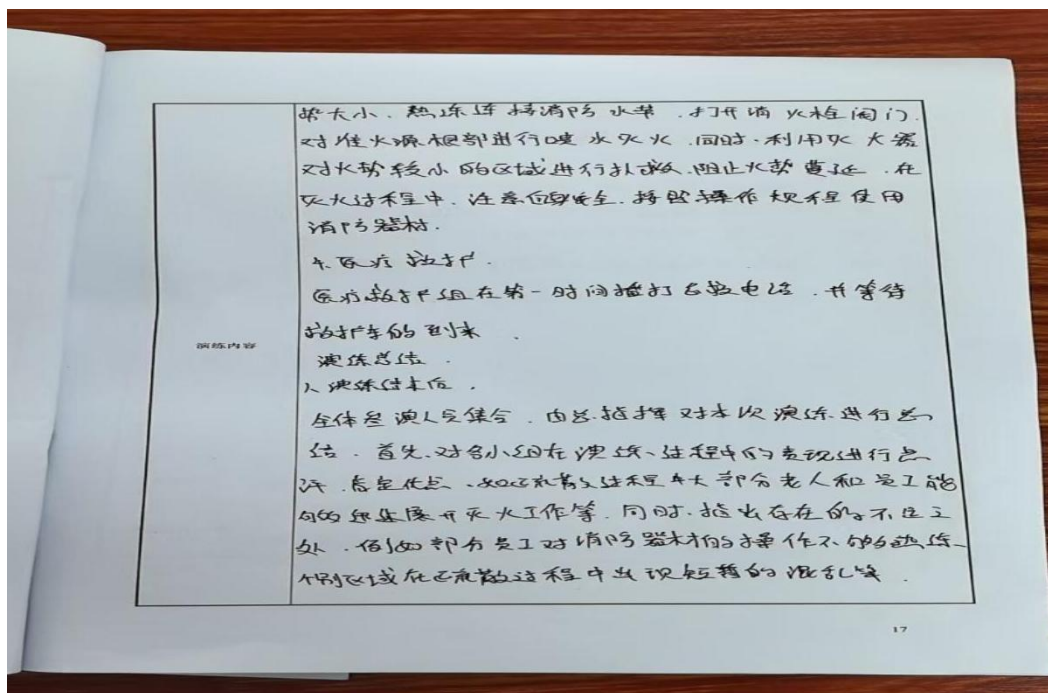 势大小、熟练连接消防水带，打开消火栓阀门，
对准火源根部进行喷水灭火，同时，利用灭火器
对火势较小的区域进行扑救，阻止火势蔓延，在
灭火过程中，注意自身安全，按照操作规程使用
消防器材。
4、医疗救护。
医疗救护组在第一时间拨打急救电话，并等待
救护车的到来。
演练内容
演练总结。
1、演练结束后，
全体参演人员集合，由总指挥对本次演练进行总
结，首先，对各小组在演练过程中的表现进行点
评，肯定优点，如疏散过程中大部分老人和员工能
够迅速展开灭火工作等，同时，指出存在的不足之
处，例如部分员工对消防器材的操作不够熟练，
个别区域在疏散过程中出现短暂的混乱等。
17